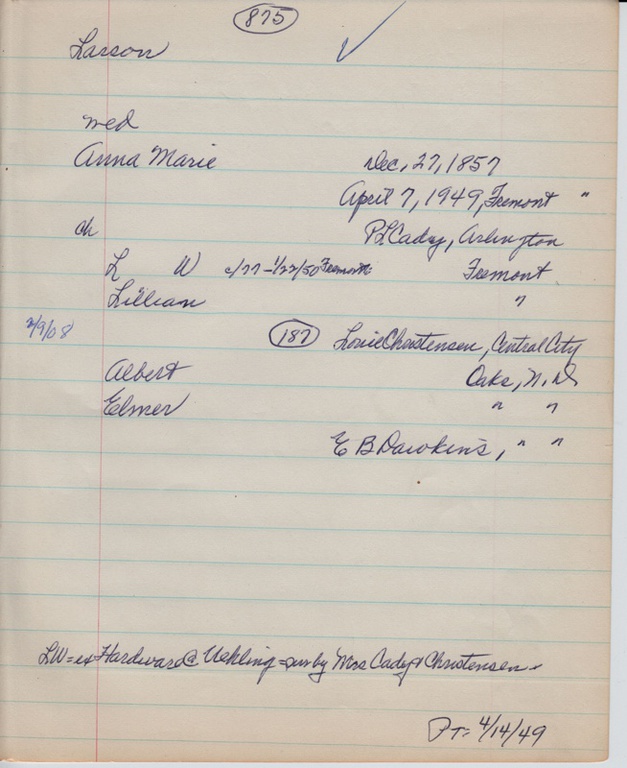 875
Larson
med
Anna Marie Dec, 27, 1857
April 7, 1949, Fremont "
ch P L Cady, Arlington
L W c/77 - 1/22/50 Fremont Fremont
Lillian "
2/9/08 187 Louie Christensen, Central City
Albert Oaks, N. D
Elmer " "
E B Dawkins, " "
LW = ex Hardware @ Uehling = sur by Mrs Cady & Christensen -
PT = 4/14/49